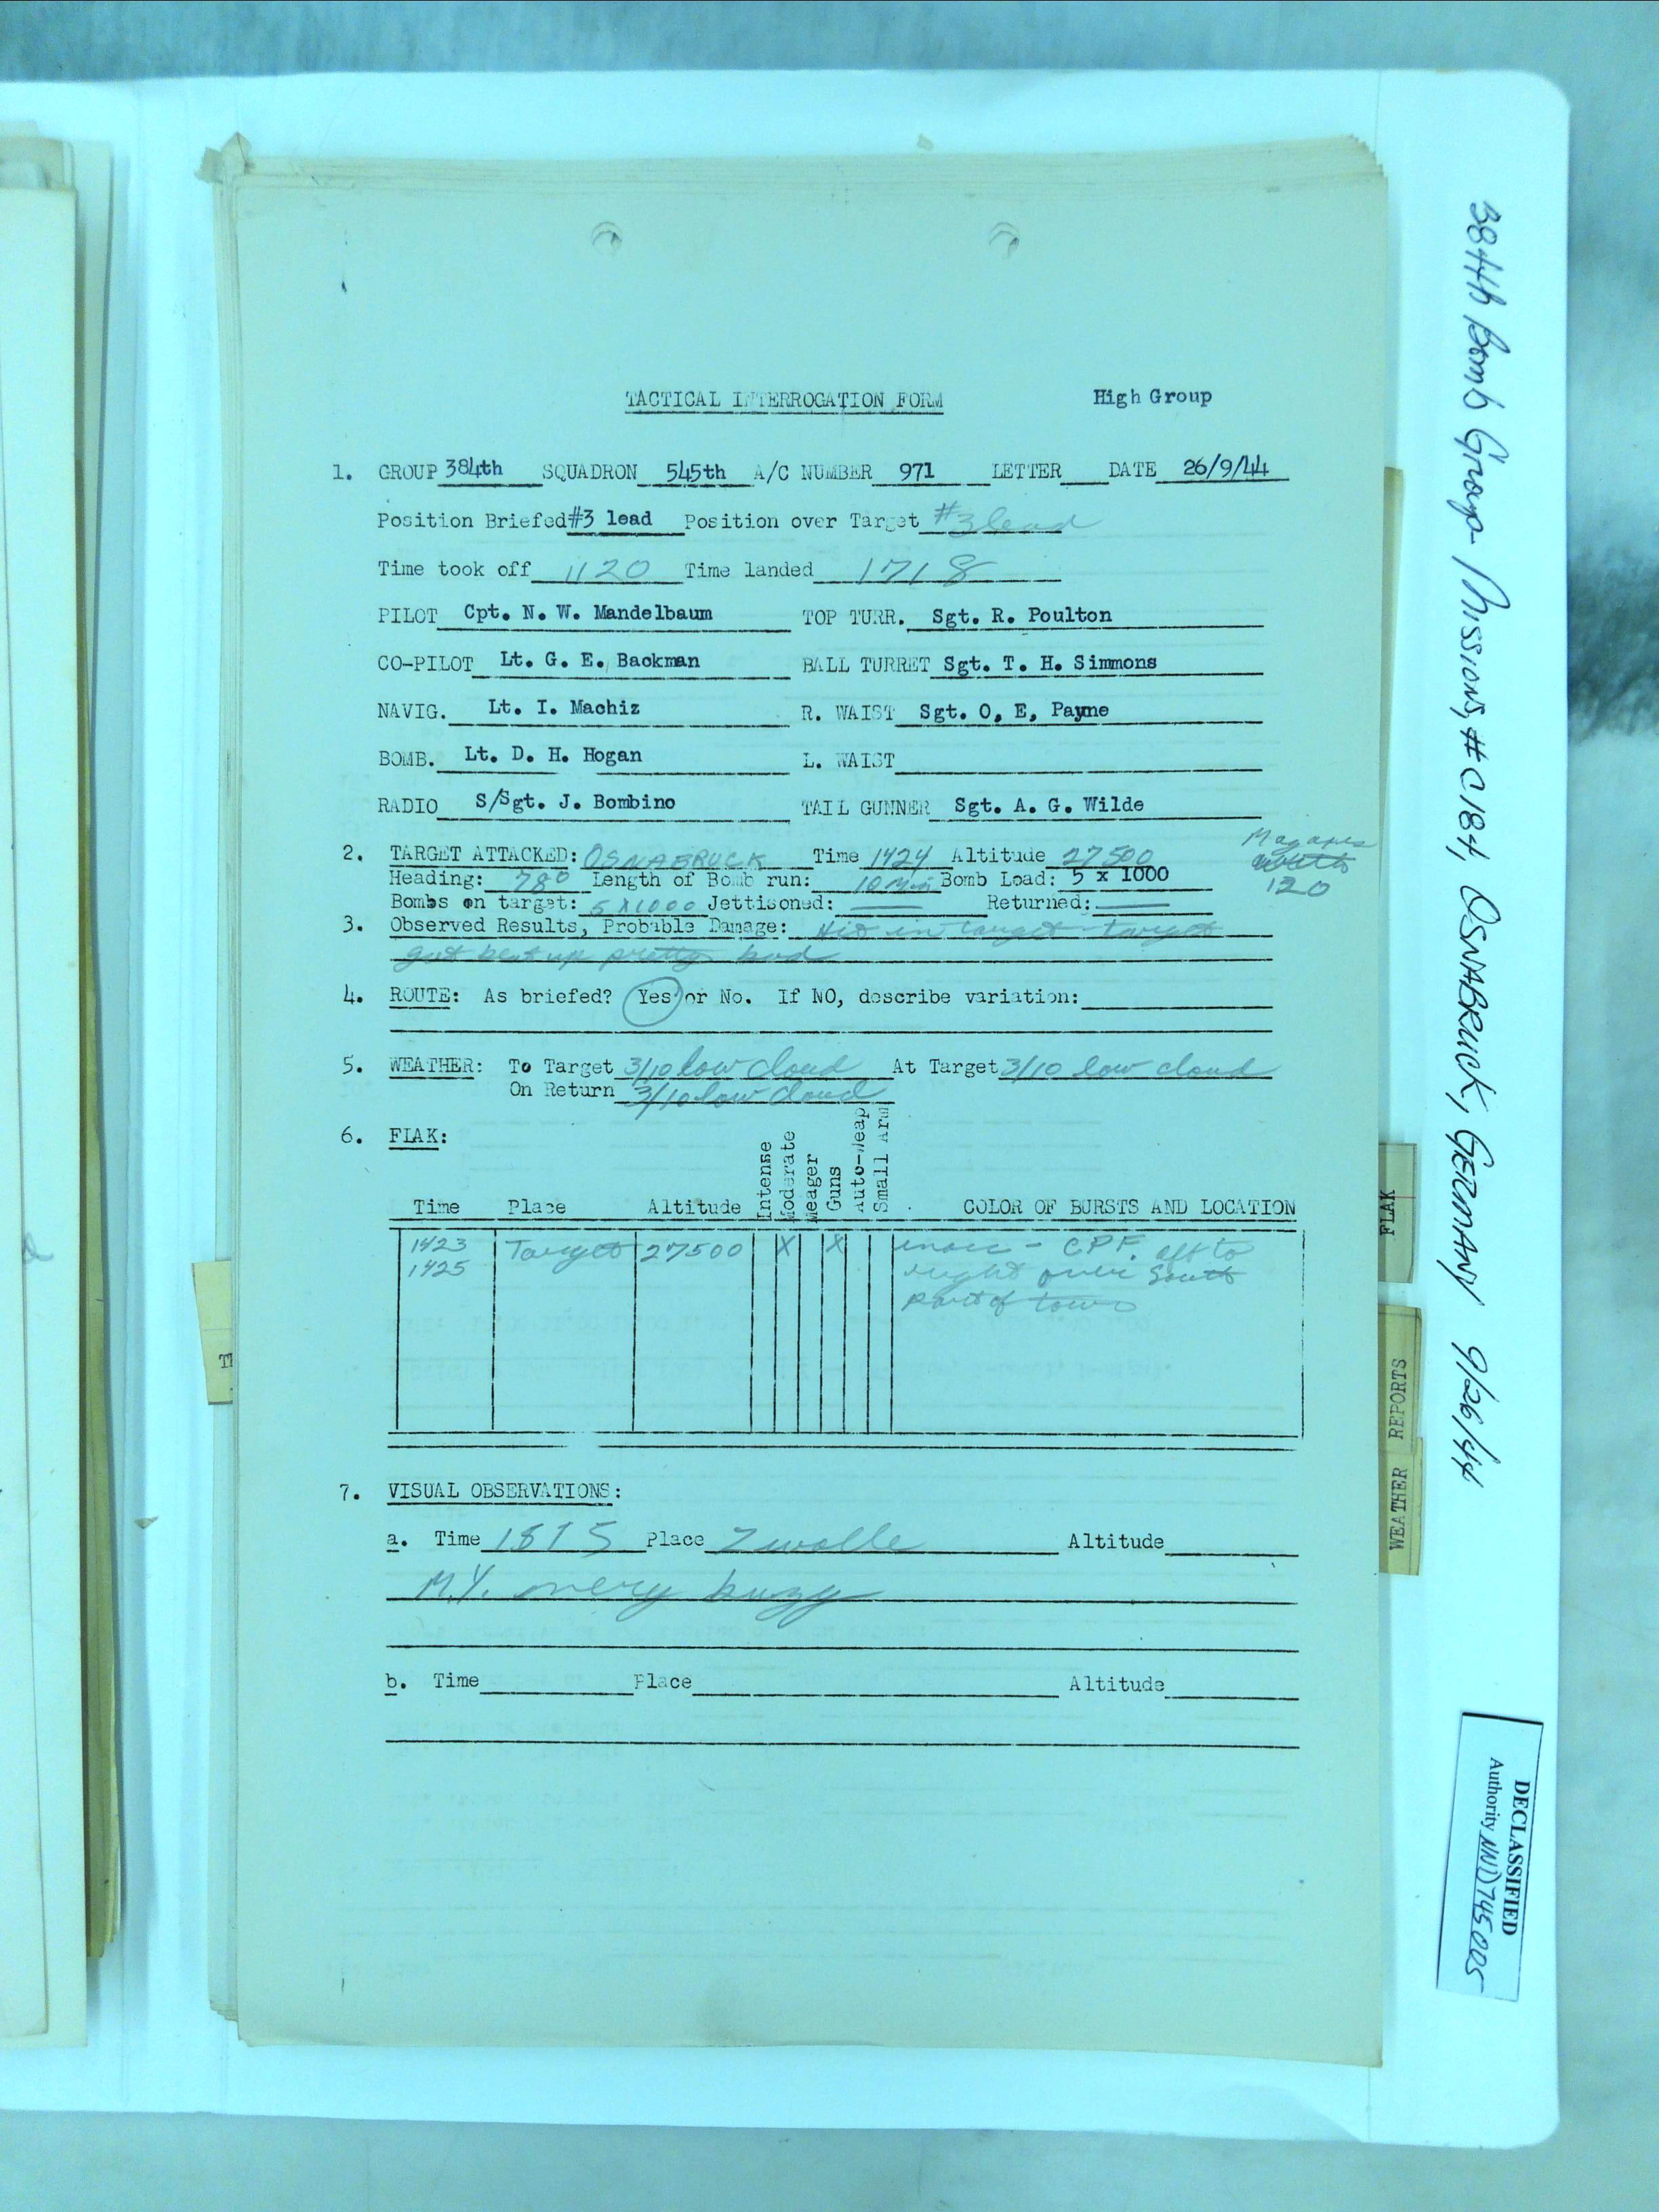 TACTICAL INTERROGATION FORM High Group
1. GROUP 384th SQUADRON 545th A/C NUMBER 971 LETTER DATE 26/9/44
Position Briefed #3 lead Position over Target #3 lead
Time took off 1120 Time landed 1718
PILOT Cpt. N. W. Mandelbaum TOP TURR. Sgt. R. Poulton
CO-PILOT Lt. G. E. Backman BALL TURRET Sgt. T. H. Simmons
NAVIG. Lt. I. Machiz R. WAIST Sgt. O, E, Payne
BOMB. Lt. D. H. Hogan L. WAIST
RADIO S/Sgt. J. Bombino TAIL GUNNER Sgt. A. G. Wilde
2. TARGET ATTACKED: OSNABRUCK Time 1424 Altitude 27500
Heading: 78° Length of Bomb run: 10 Min Bomb Load: 5 x 1000
120
Bombs on target: 5X1000 Jettisoned: — Returned: —
3. Observed Results, Probable Damage: Hit in target - target
got beat up pretty bad
4. ROUTE: As briefed? Yes or No. If NO, describe variation:
5. WEATHER: To Target 3/10 low cloud At Target 3/10 low cloud
On Return 3/10 low cloud
6. FLAK:
Intense
Moderate
Meager
Guns
Auto-Weap
Small Arm
Time Place Altitude COLOR OF BURSTS AND LOCATION
1423 Target 27500 X X - CPF. aft to
1425 right over South
part of town
7. VISUAL OBSERVATIONS:
a. Time Place Zwolle Altitude
M.Y. very buzy
b. Time Place Altitude
384th Bomb Group Missions, #C184, OSNABRUCK, GERMANY 9/26/44
FLAK
WEATHER REPORTS
DECLASSIFIED
Authority NND745005